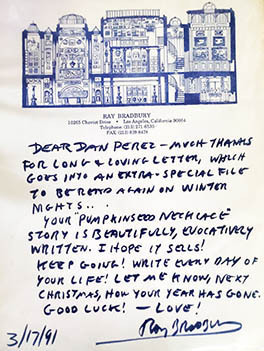 RAY BRADBURY
10265 Cheviot Drive • Los Angeles, California 90064
Telephone (213)
FAX (213)
DEAR DAN PEREZ — MUCH THANKS
FOR LONG & LOVING LETTER, WHICH
GOES INTO AN EXTRA-SPECIAL FILE
TO BE READ AGAIN ON WINTER
NIGHTS...
YOUR "PUMPKINSEED NECKLACE"
STORY IS BEAUTIFULLY, EVOCATIVELY
WRITTEN. I HOPE IT SELLS!
KEEP GOING! WRITE EVERY DAY OF
YOUR LIFE! LET ME KNOW, NEXT
CHRISTMAS, HOW YOUR YEAR HAS GONE.
GOOD LUCK! — LOVE!
3/17/91 Ray Bradbury